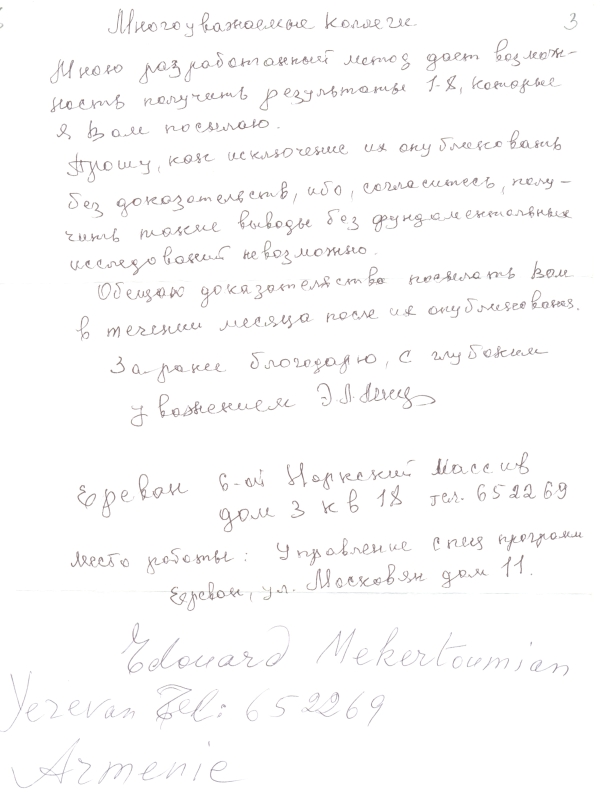 Многоуважаемые коллеги. 3
Мною разработанный метод дает возмож-
ность получить результаты 1-8, которые
я Вам посылаю.
Прошу, как исключение их опубликовать
без доказательств, ибо, согласитесь, полу-
чить такие выводы без фундаментальных
исследований невозможно.
Обещаю доказательства посылать Вам
в течении месяца после их опубликования.
Заранее благодарю, с глубоким
уважением Э.Л.
Ереван 6-ой Норкский Массив
дом 3 кв 18 тел. 652269
Место работы: Управление спец программ
Ереван, ул. Московян дом 11.
Edouard Mekertoumian
Yerevan Tel: 652269
Armenie